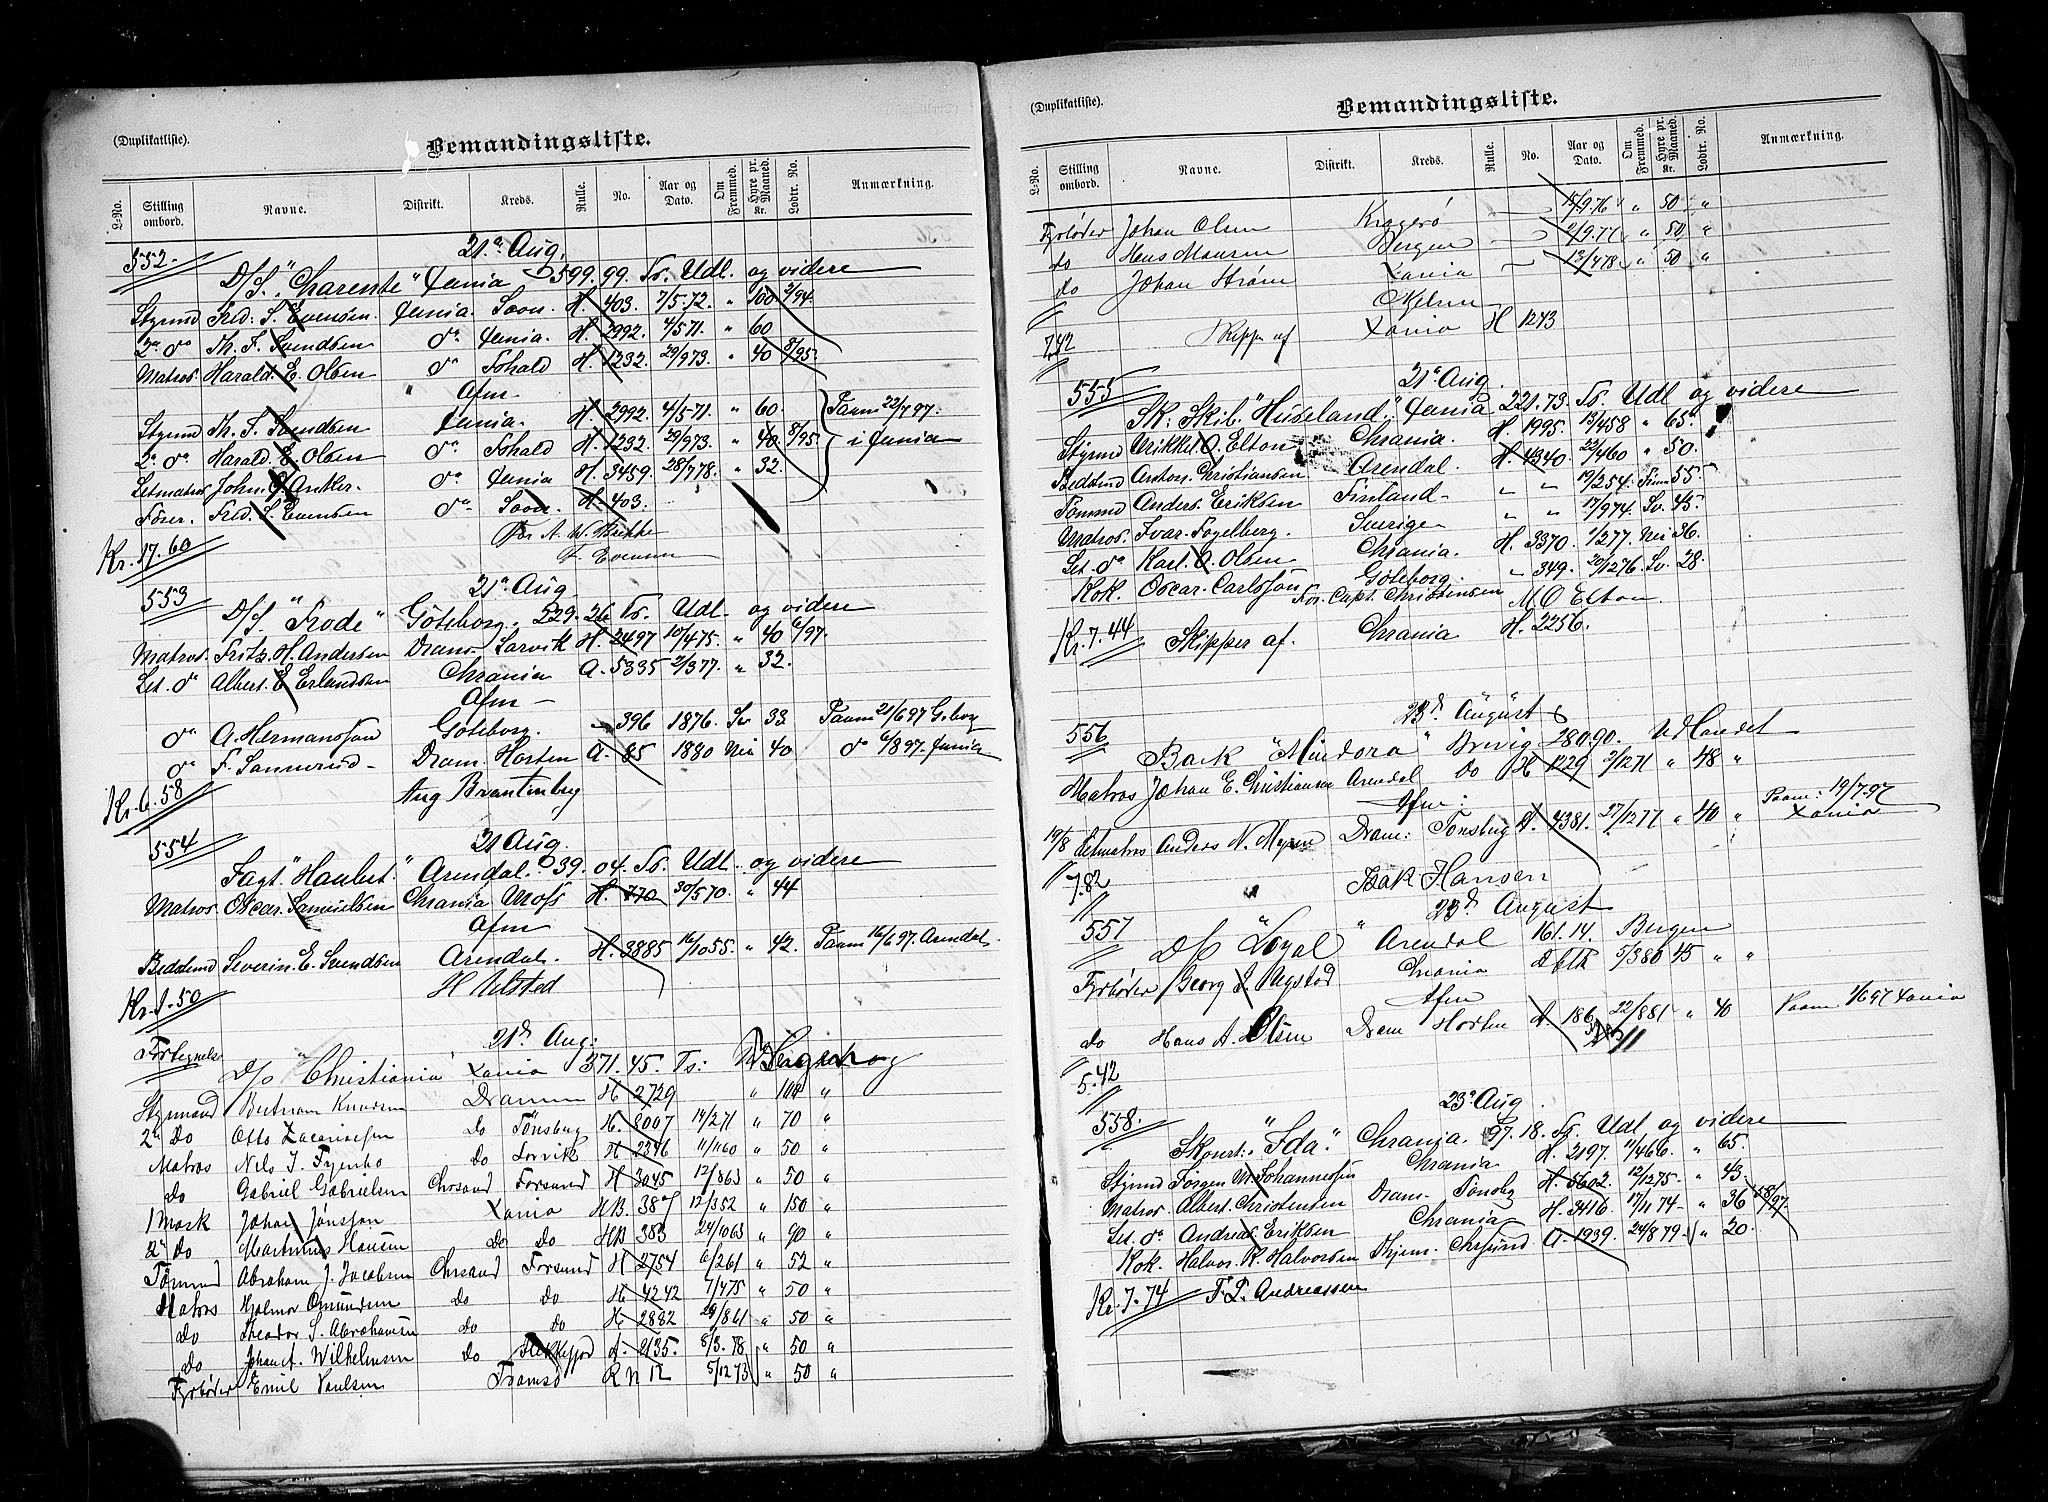 (Duplikatliste).
Bemandingsliste.
L-No. Stilling ombord. Navne. Distrikt. Kreds. Rulle. No. Aar og Dato. Om Fremmed. Hyre pr. Maaned. Kr. Lodtr. No. Anmærkning.
552. 21ª Aug.
D/S. "Charente" 599.99. Ts. Udl. og videre
Styrmd Fred. S. Evensen. Soon. H. 403. 7/5.72. " 100 2/94.
2ª dº Th. F. Svendsen dº H. 2992. 4/571. " 60
Matros. Harald. E. Olsen dº H. 1232. 29/973. " 40 8/95.
Afm
Styrmd Th. F. Svendsen H. 2992. 4/571. " 60. Paam 22/797.
2ª dº Harald. E. Olsen dº H. 1232. 29/973. " 40. 8/95. i
Letmatros John. Anker. dº H. 3459. 28/778. " 32.
Fører. Fred. S. Evensen dº Soon. H. 403.
Kr. 17.60
553 21ª Aug.
D/S "Frode" Göteborg. 529.26 Ts. Udl. og videre
Matros. Fritz. H. Andersen Dram Larvik H. 2497 10/475. " 40 6/97.
Let. dº Albert. E Erlandsen Chrania A. 5335 2/377. " 32.
Afm
dº A. Hermansson Göteborg. 396 1876. Sv 33 Paam 21/697 Gøborg
dº F. Sannerud Dram. Horten A. 85 1880 Nei 40 dº 6/897.
Kr. 6.58 Aug Brantenberg
554 21 Aug.
Jagt "Haabet" Arendal. 39.04. Ts. Udl. og videre
Matros Oscar. Samuelsen Chrania Moss H. 770 30/570. " 44
Afm
Bedstmd Severin. E. Svendsen Arendal. H. 3885 16/1055. " 42. Paam 16/697. Arendal.
Kr. 1.50
Fortegnelse 21d Aug:
D/S "Christiania" Xania 371.45 Ts:
Styrmand Bertram Knudsen Drammen H 2729 " 104 "
2n Do Otto Zacariassen do Tönsberg H. 8007 14/271 " 70 "
Matros Nils J. do Larvik H 2346 11/1160 " 50 "
do Gabriel Gabrielsen Chrsand Forsund H 3045 12/863 " 50 "
1 Mask Johan Jönsson Xania HB. 387 12/352 " 150 "
2n Do Martinius Hansen do Do HB 383 24/1063 " 90 "
Tömmd Abraham J. Jacobsen Chrsand Forsund H 2754 6/261 " 52 "
Matros Hjalmar Omundsen do Do H 4242 7/475 " 50 "
do Theodor S. Abrahamsen do do H 2882 29/861 " 50 "
do Johan A. Wilhelmsen do Flekkefjord A. 2135. 8/3.78 " 50 "
Fyrbøder Emil Paulsen Tromsö R N 12 5/1273 " 50 "
(Duplikatliste).
Bemandingsliste.
L-No. Stilling ombord. Navne. Distrikt. Kreds. Rulle. No. Aar og Dato. Om Fremmed. Hyre pr. Maaned. Kr. Lodtr. No. Anmærkning.
Fyrbøder Johan Olsen Kragerö 15/976 " 50 "
do Hans Monsen Bergen 2/977 " 50 "
do Johan Strøm Xania 13/478 " 50 "
742 Skipp af Xania H 1243
555 21ª Aug.
Sk: Skib. "Husseland" 221.73. Ts. Udl og videre
Styrmd O. Elton Chrania. H. 1995. 13/458 " 65.
Bedstmd Anton. Christiansen Arendal. H. 4340 22/460 " 50.
Tømmd Anders. Eriksen Finland " " 19/254. Finn 55.
Matros. Ivar. Fogelberg. Sverige " " 17/974. Sv. 45.
Let. dº Karl. O. Olsen Chrania. H. 3370. 1/277. Nei 36.
Kok. Oscar. Carlsson Göteborg. " 349. 20/1276. Sv. 28.
For. Capt. Christensen M. O. Elton.
Kr. 7.44 Skipper af. Chrania H. 2256.
556 23d August
Bark "Mindora" Brevig 280.90. Udlandet
Matros Johan E. Christiansen Arendal Do H 1229 2/1271 " 48 "
Afm:
19/8 Letmatros Anders N. Myren Dram: Tönsberg A. 4381. 27/1277 " 40 " Paam: 19/7.97 Xania
7.82 Isak Hansen
557 23d August
D/S "Loyal" Arendal 161.14. Bergen
Fyrbøder Georg J. Aagstad Chrania 5/380 45 " "
Afm
do Hans A. Olsen Dram Horten A. 186 22/881 " 40 Paam 1/697 Xania
5.42
558. 23ª Aug.
Skonrt: "Ida" Chrania. 97.18. Ts. Udl og videre
Styrmd Jørgen M. Johannesen Chrania H. 2197. 11/466. " 65
Matros Albert. Christensen Dram. Tönsbg H. 5602. 12/1275. " 43.
Let. dº Andreas Eriksen Chrania H. 3416 17/1174. " 36 58/97.
Kok. Halvor. K. Halvorsen A. 1939. 24/879. " 20.
Kr. 7.74 F. L. Andreassen